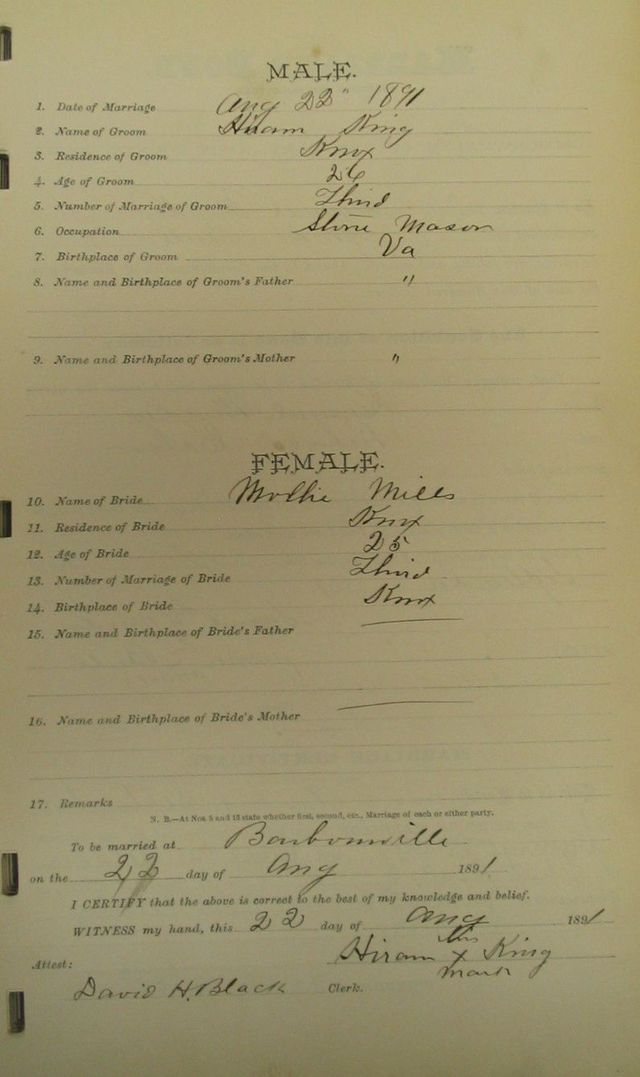 MALE.
1. Date of Marriage Aug 22" 1891
2. Name of Groom Hiram King
3. Residence of Groom Knox
4. Age of Groom 26
5. Number of Marriage of Groom Third
6. Occupation Stone Mason
7. Birthplace of Groom Va
8. Name and Birthplace of Groom's Father "
9. Name and Birthplace of Groom's Mother "
FEMALE.
10. Name of Bride Mollie Mills
11. Residence of Bride Knox
12. Age of Bride 25
13. Number of Marriage of Bride Third
14. Birthplace of Bride Knox
15. Name and Birthplace of Bride's Father
16. Name and Birthplace of Bride's Mother
17. Remarks
N. B.—At Nos. 5 and 13 state whether first, second, etc., Marriage of each or either party.
To be married at Barbourville
on the 22 day of Aug 1891
I CERTIFY that the above is correct to the best of my knowledge and belief.
WITNESS my hand, this 22 day of Aug 1891
his
Hiram x King
mark
Attest:
David H. Black Clerk.